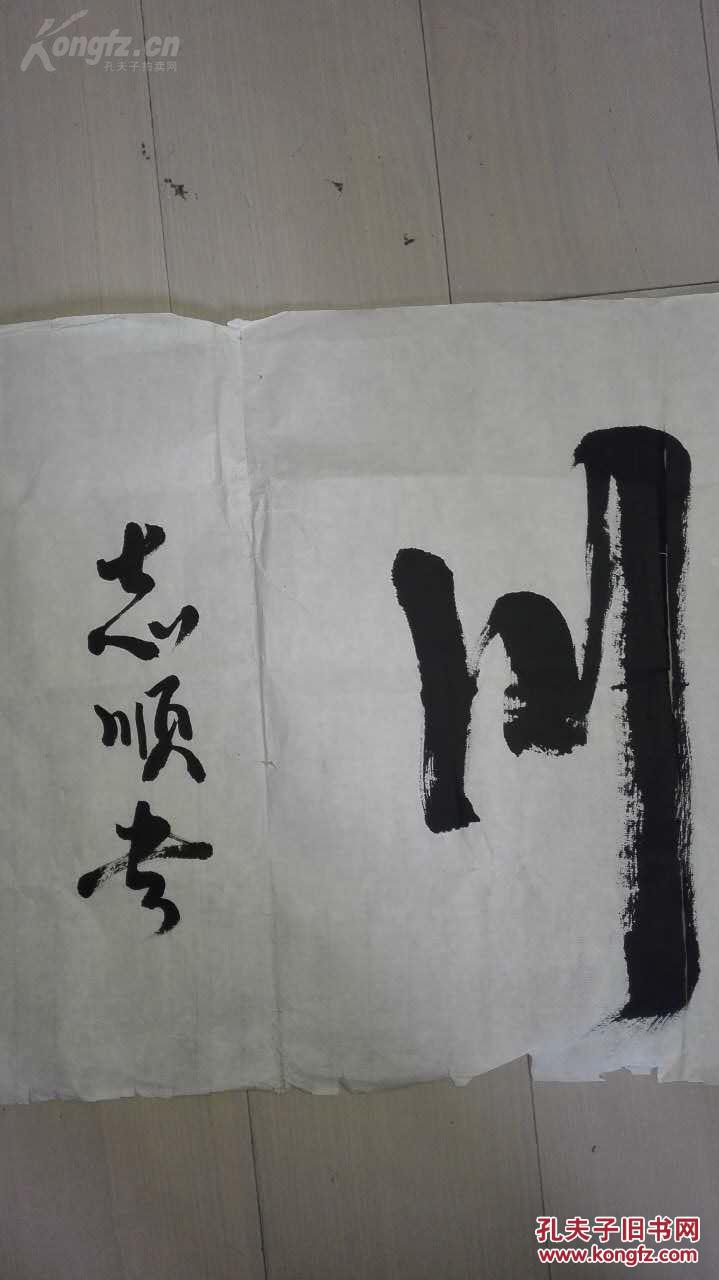 Kongfz.cn
孔夫子拍卖网
川
志顺书
孔夫子旧书网
www.kongfz.com